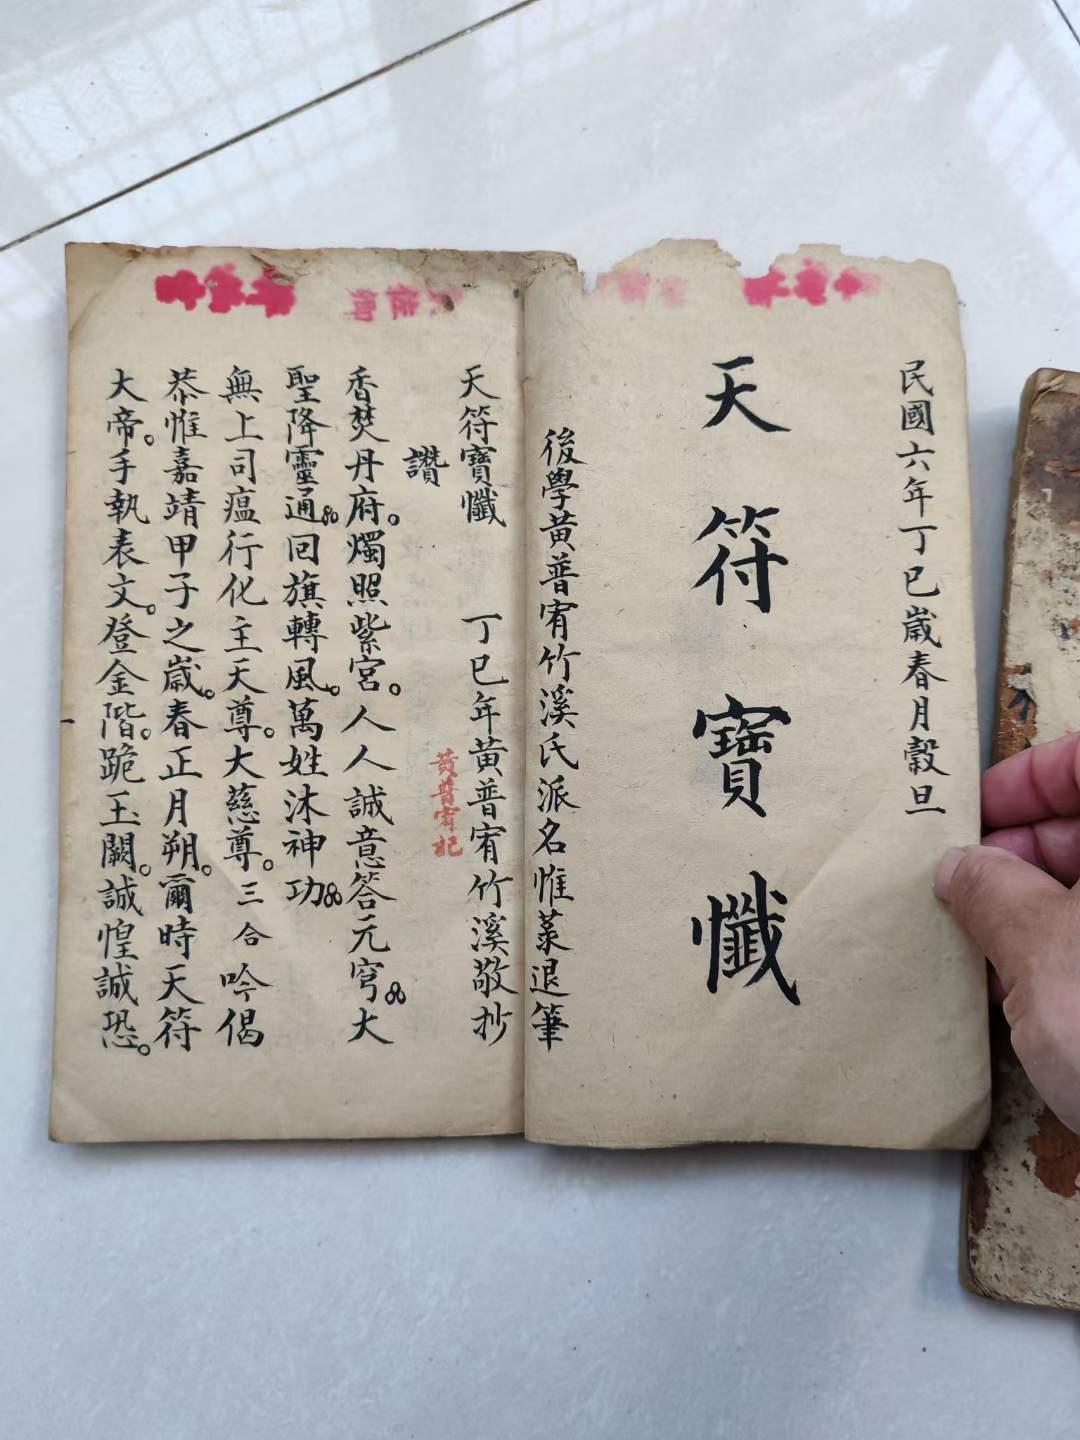 民國六年丁巳歲春月穀旦
天符寶懺
後學黃普宥竹溪氏派名惟菉退筆
天符寶懺 丁巳年黃普宥竹溪敬抄
黃普宥記
讚
香焚丹府。燭照紫宮。人人誠意答元穹。大
聖降靈通。回旗轉風。萬姓沐神功。
無上司瘟行化主天尊。大慈尊。三合吟偈
恭惟嘉靖甲子之歲。春正月朔。爾時天符
大帝。手執表文。登金階。跪玉闕。誠惶誠恐。